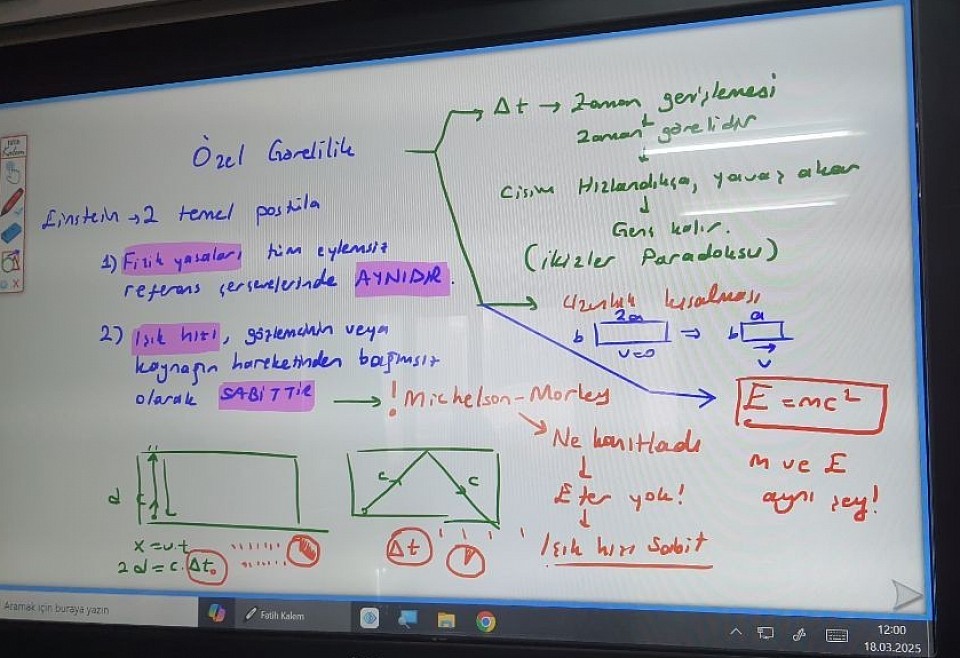 Özel Görelilik
Einstein → 2 temel postüla
1) Fizik yasaları tüm eylemsiz
referans çerçevelerinde AYNIDIR.
2) Işık hızı, gözlemcinin veya
kaynağın hareketinden bağımsız
olarak SABİTTİR → ! Michelson-Morley
Ne kanıtladı
↓
Eter yok!
↓
Işık hızı Sabit
Δt → Zaman genişlemesi
Zaman görelidir
↓
Cisim Hızlandıkça, yavaş akar
↓
Genç kalır.
(ikizler Paradoksu)
Uzunluk kısalması
2a
b
v=0
⇒
a
b
v
E = mc²
m ve E
aynı şey!
d
x = v.t
2d = c.Δt₀
c
c
Δt
Fatih
Kalem
Aramak için buraya yazın
Fatih Kalem
12:00
18.03.2025